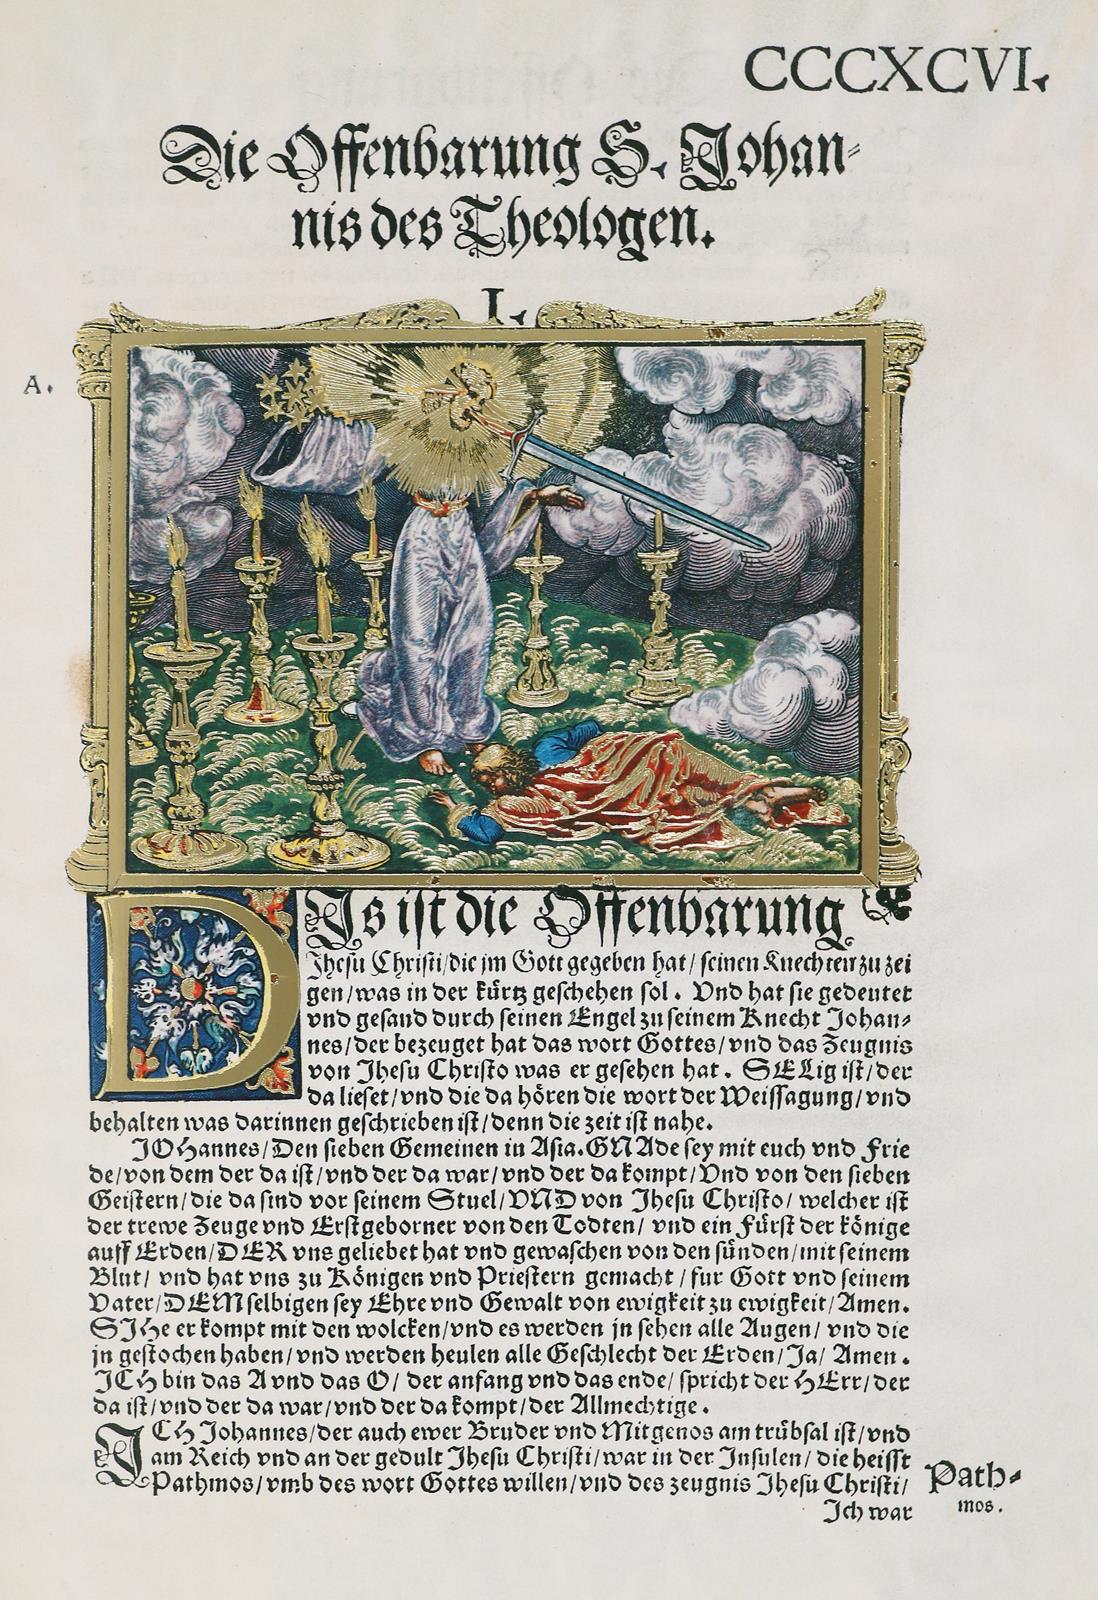 CCCXCVI.
Die Offenbarung S. Johan⸗
nis des Theologen.
I.
A.
DIs ist die Offenbarung
Jhesu Christi/die jm Gott gegeben hat/ seinen Knechten zu zei
gen/was in der kürtz geschehen sol. Vnd hat sie gedeutet
vnd gesand durch seinen Engel zu seinem Knecht Johan⸗
nes/der bezeuget hat das wort Gottes/vnd das Zeugnis
von Jhesu Christo was er gesehen hat. SELig ist/der
da lieset/vnd die da hören die wort der Weissagung/vnd
behalten was darinnen geschrieben ist/denn die zeit ist nahe.
JOHannes/Den sieben Gemeinen in Asia. GNAde sey mit euch vnd Frie
de/von dem der da ist/vnd der da war/vnd der da kompt/Vnd von den sieben
Geistern/die da sind vor seinem Stuel/VND von Jhesu Christo/ welcher ist
der trewe Zeuge vnd Erstgeborner von den Todten/ vnd ein Fürst der Könige
auff Erden/DER vns geliebet hat vnd gewaschen von den sünden/mit seinem
Blut/ vnd hat vns zu Königen vnd Priestern gemacht/fur Gott vnd seinem
Vater/DEMselbigen sey Ehre vnd Gewalt von ewigkeit zu ewigkeit/Amen.
SIHe er kompt mit den wolcken/vnd es werden jn sehen alle Augen/ vnd die
jn gestochen haben/vnd werden heulen alle Geschlecht der Erden/Ja/ Amen.
ICH bin das A vnd das O/ der anfang vnd das ende/ spricht der HErr/der
da ist/vnd der da war/vnd der da kompt/der Allmechtige.
JCH Johannes/der auch ewer Bruder vnd Mitgenos am trübsal ist/vnd
am Reich vnd an der gedult Jhesu Christi/war in der Insulen/die heisst
Pathmos/vmb des wort Gottes willen/vnd des zeugnis Jhesu Christi/
Path⸗
mos.
Ich war